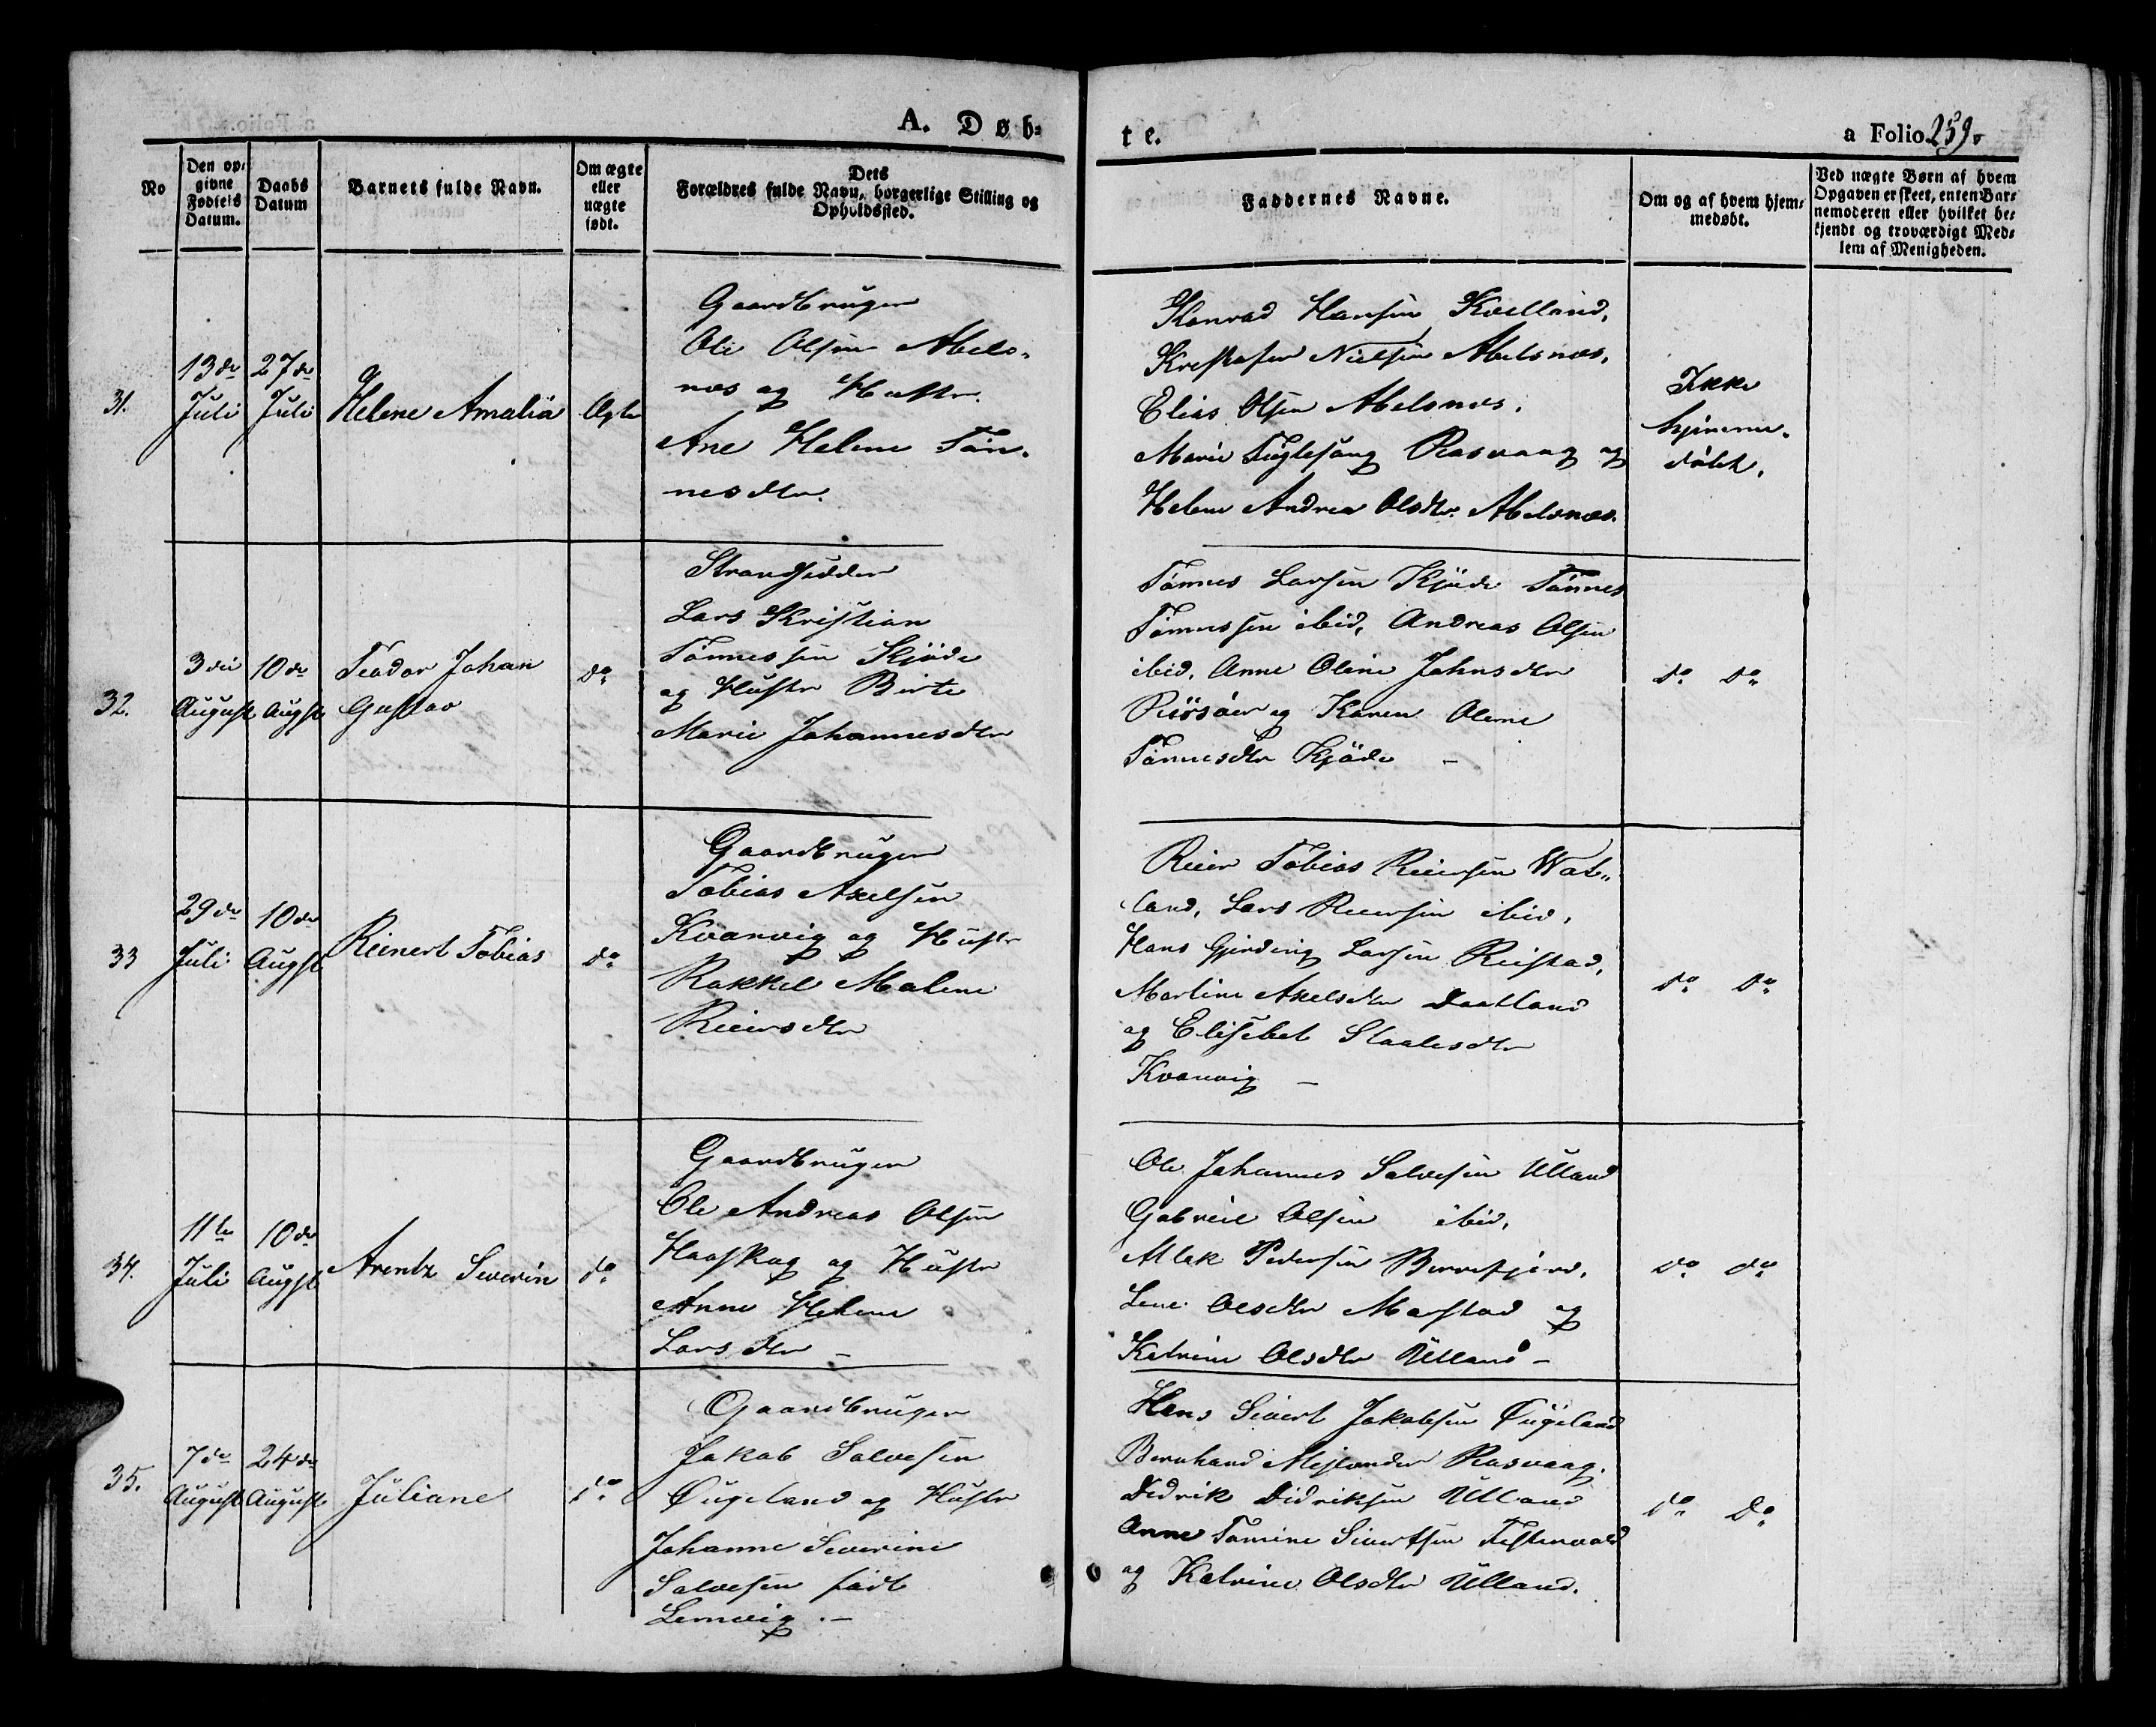 A. Døb=
te.
a Folio 259.
No
Den op=
givne
Fødsels
Datum.
Daabs
Datum
Barnets fulde Navn.
Om ægte
eller
uægte
født.
Dets
Forældres fulde Navn, borgerlige Stilling og
Opholdssted.
Faddernes Navne.
Om og af hvem hjem=
medøbt.
Ved uægte Børn af hvem
Opgaven er skeet, enten Bar=
nemoderen eller hvilket be=
kjendt og troværdigt Med=
lem af Menigheden.
31.
13de
Juli
27de
Juli
Helene Amalia
Ægte
Gaardbruger
Ole Olsen Abels=
næs og Hustr.
Ane Helene Tøn=
nesdtr.
Konrad Hansen Kvelland,
Krestofer Nielsen Abelsnæs,
Elias Olsen Abelsnæs,
Marie Fuglesang Rasvaag og
Helene Andrea Olsdtr. Abelsnæs.
Ikke
hjemme=
døbt.
32.
3die
August
10de
Augst
Teodor Johan
Gustav
do
Strandsidder
Lars Kristian
Tønnessen Kjøde
og Hustr Birte
Marie Johannesdtr
Tønnes Larsen Kjøde Tønnes
Tønnessen ibid, Andreas Olsen
ibid, Anne Oline Johnsdtr
og Karen Olene
Tønnesdtr Kjøde –
do do
33
29de
Juli
10de
Augst
Reinert Tobias
do
Gaardbruger
Tobias Axelsen
Kvanvig og Hustr
Rakkel Malene
Reiersdtr
Reier Tobias Reiersen Wat=
land, Lars Reiersen ibid,
Hans Gjerding Larsen Reistad,
Martine Axelsdtr Daatland
og Elisebet Staalesdtr
Kvanvig –
do do
34.
11te
Juli
10de
Augst
Arentz Severin
do
Gaardbruger
Ole Andreas Olsen
Haaskag og Hustr
Anne Helene
Larsdtr –
Ole Johannes Salvesen Ulland
Gabriel Olsen ibid,
Atlak Pedersen Berrefjord,
Lene Olsdtr Marstad og
Katrine Olsdtr Ulland –
do do
35.
7de
August
24de
August
Juliane
do
Gaardbruger
Jakob Salvesen
Øugeland og Hustr
Johanne Severine
Salvesen født
Lernvig. –
Hans Sivert Jakobsen Øugeland
Bernhard Mejlænder Rasvaag.
Didrik Didriksen Ulland
Anne Tomine Sivertsen Festervold
og Katrine Olsdtr Ulland.
do do